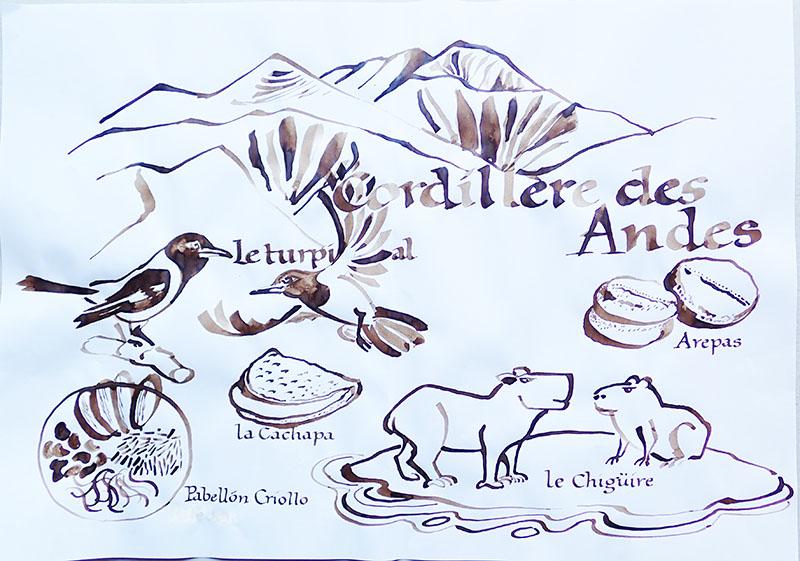 Cordillère des
Andes
Le turpial
Arepas
la Cachapa
le Chigüire
Pabellón Criollo